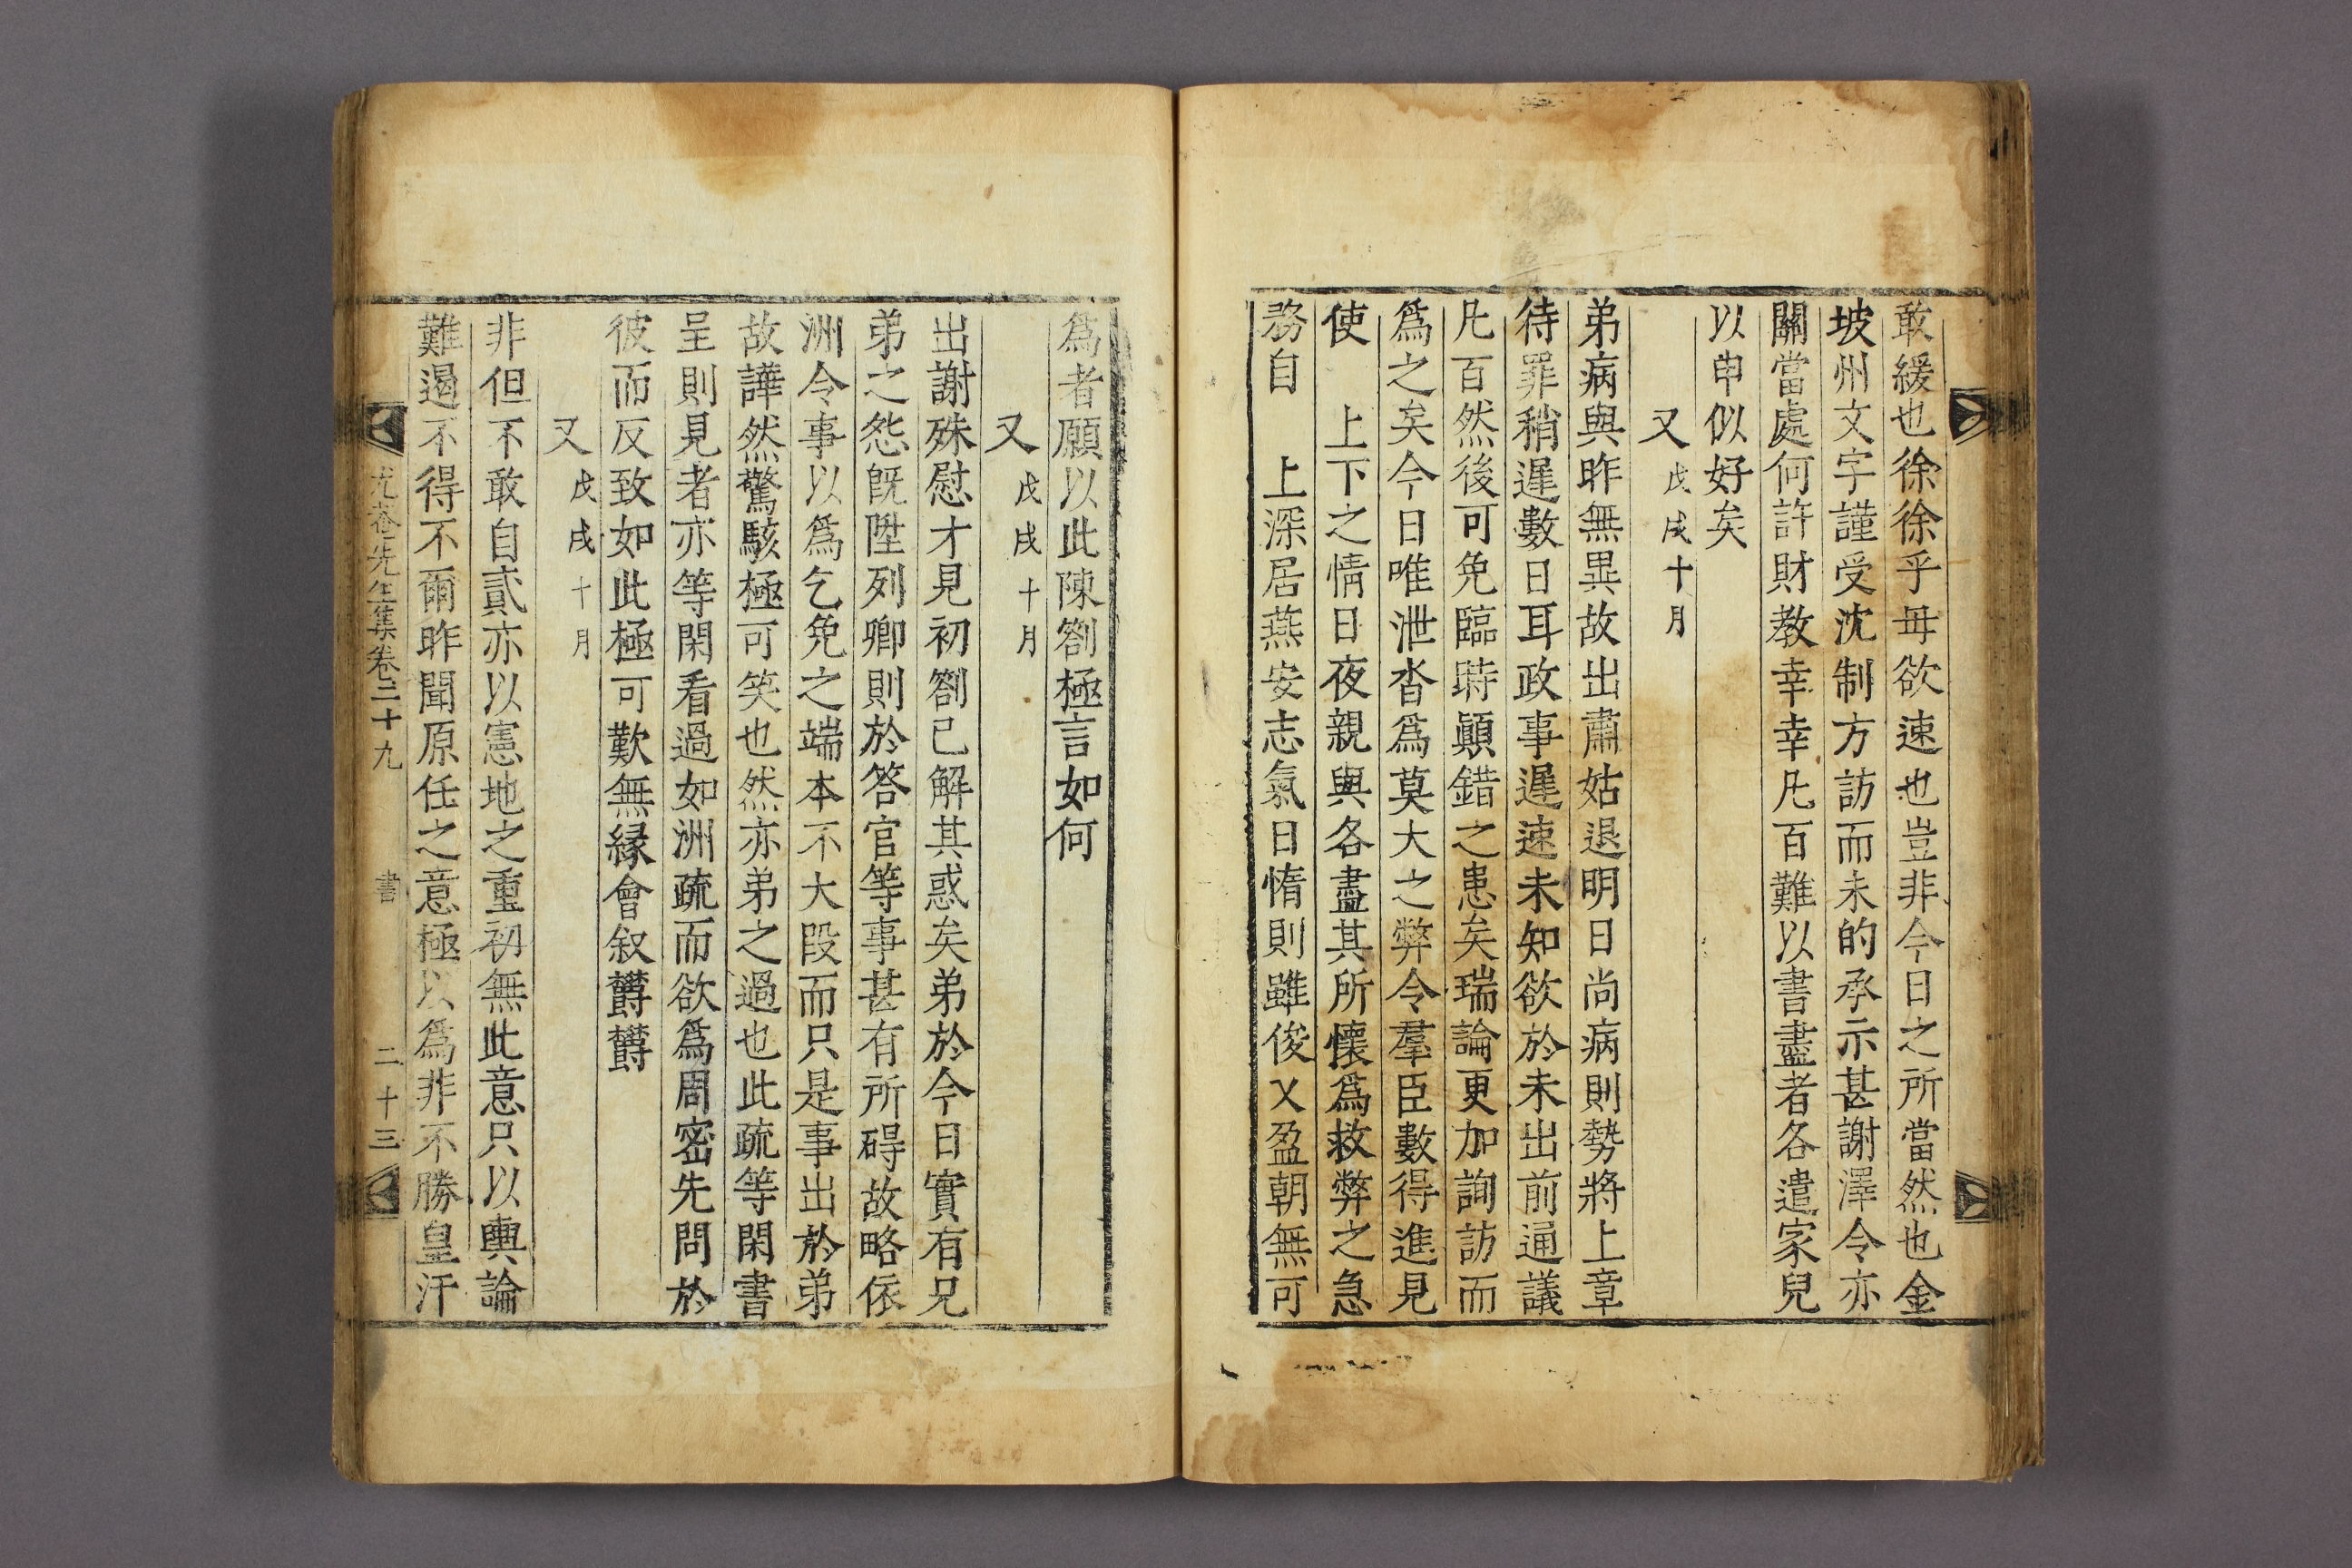 敢緩也徐徐乎毋欲速也豈非今日之所當然也金
坡州文字謹受沈制方訪而未的承示甚謝澤令亦
關當處何許財教幸幸凡百難以書盡者各遣家兒
以申似好矣
又 戊戌十月
弟病與昨無異故出肅姑退明日尚病則勢將上章
待罪稍遲數日耳政事遲速未知欲於未出前通議
凡百然後可免臨時顚錯之患矣瑞論更加詢訪而
爲之矣今日唯泄沓爲莫大之弊令羣臣數得進見
使 上下之情日夜親與各盡其所懷爲救弊之急
務自 上深居燕安志氣日惰則雖俊乂盈朝無可
爲者願以此陳劄極言如何
又 戊戌十月
出謝殊慰才見初劄已解其惑矣弟於今日實有兄
弟之怨旣陞列卿則於答官等事甚有所碍故略依
洲令事以爲乞免之端本不大段而只是事出於弟
故譁然驚駭極可笑也然亦弟之過也此疏等閑書
呈則見者亦等閑看過如洲疏而欲爲周密先問於
彼而反致如此極可歎無緣會叙欝欝
又 戊戌十月
非但不敢自貳亦以憲地之重初無此意只以輿論
難遏不得不爾昨聞原任之意極以爲非不勝皇汗
尤菴先生集卷三十九 書 二十三